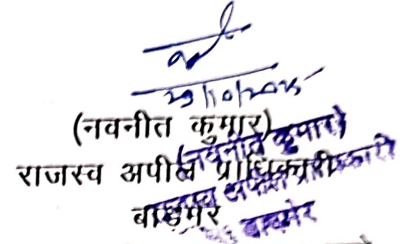 29/10/2025
(नवनीत कुमार)
राजस्व अपील प्राधिकारी
बाडमेर
(नवनीत कुमार)
राजस्व अपील प्राधिकारी
बाडमेर